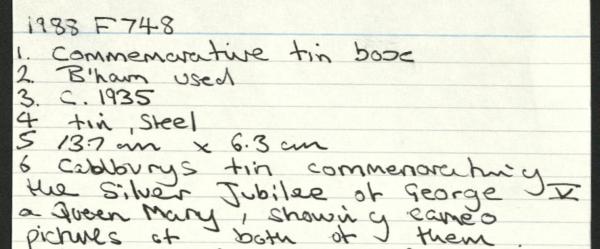 1988 F748
1. Commemorative tin box
2. B'ham used
3. C. 1935
4 tin, Steel
5 13.7 cm x 6.3 cm
6 Cadburys tin commemorating
the Silver Jubilee of George V
a Queen Mary, showing cameo
pictures of both of them.